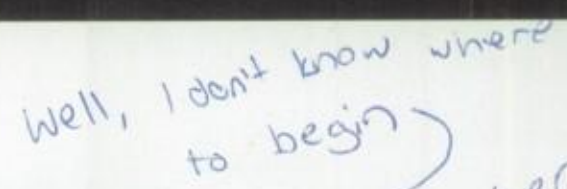 Well, I don't know where
to begin